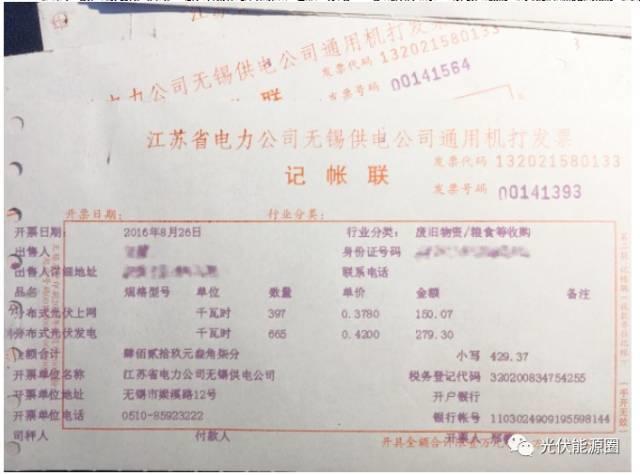 江苏省电力公司无锡供电公司通用机打发票
发票代码 132021580133
发票号码 00141564
记帐联
江苏省电力公司无锡供电公司通用机打发票
发票代码 132021580133
记帐联
发票号码 00141393
开票日期： 行业分类：
开票日期： 2016年8月26日 行业分类： 废旧物资/粮食等收购
出售人 身份证号码
出售人详细地址 联系电话
品名 规格型号 单位 数量 单价 金额 备注
分布式光伏上网 千瓦时 397 0.3780 150.07
分布式光伏发电 千瓦时 665 0.4200 279.30
金额合计 肆佰贰拾玖元叁角柒分 小写 429.37
开票单位名称 江苏省电力公司无锡供电公司 税务登记代码 320200834754255
开票单位地址 无锡市梁溪路12号 开户银行
开票单位电话 0510-85923222 银行帐号 1103024909195598144
司秤人 付款人 开票人
（手开无效）
光伏能源圈